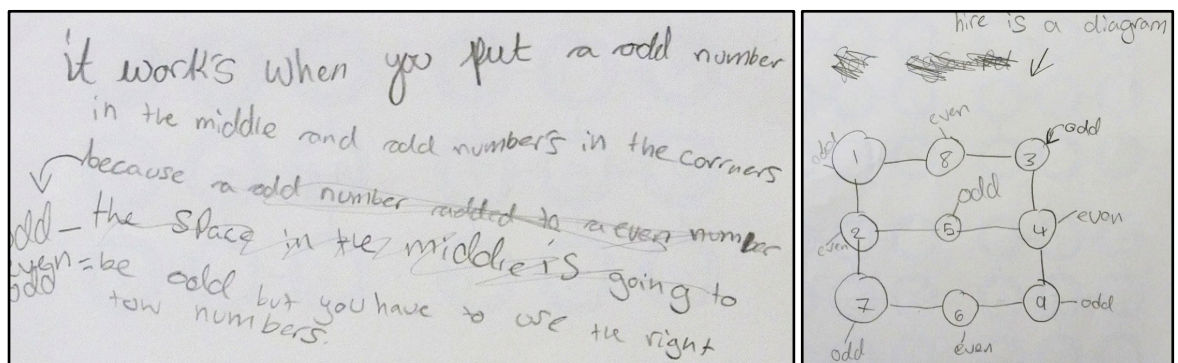 it works when you put a odd number
in the middle and odd numbers in the corrners
because a odd number added to a even number
odd - the space in the middle is going to
even = be odd but you have to use the right
odd tow numbers.
hire is a diagram
even
odd 1 8 3 odd
odd
even 2 5 4 even
7 6 9 odd
odd even